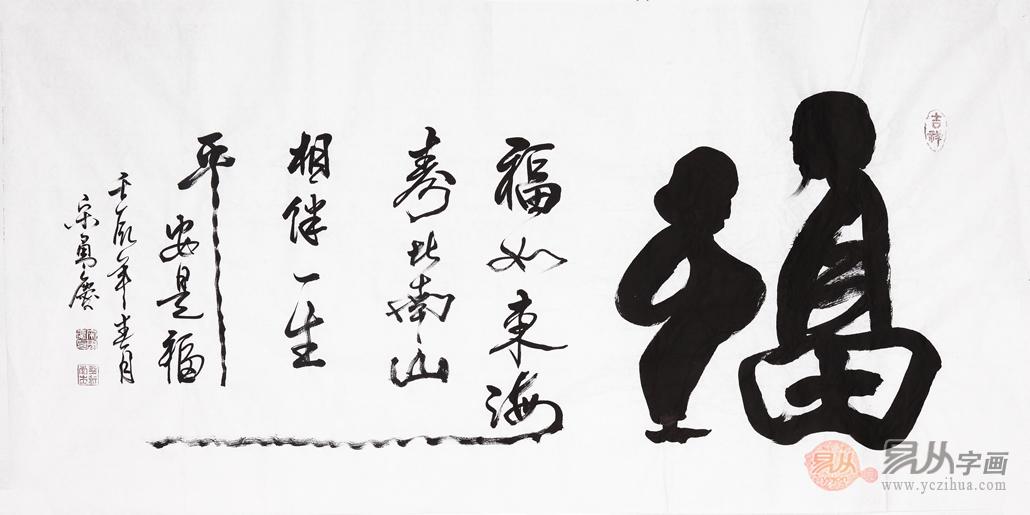 吉祥
福
福如东海
寿比南山
相伴一生
平安是福
壬辰年春月
宋勇庆
易从
易从字画
www.yczihua.com